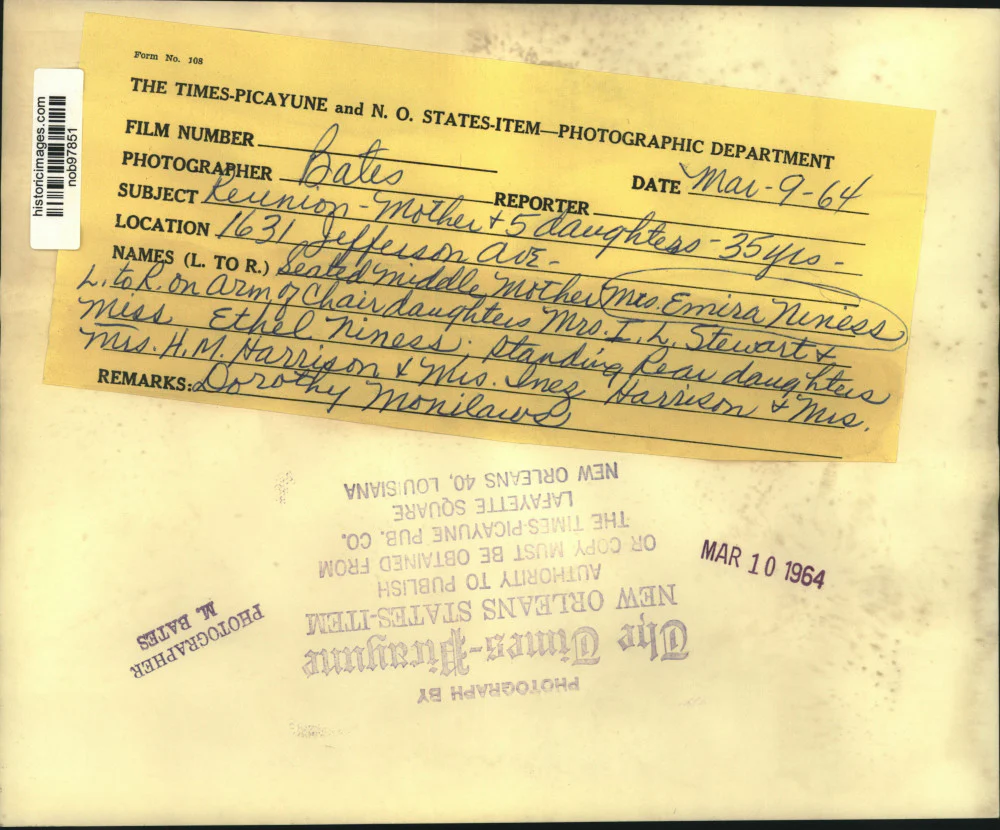 historicimages.com
nob97851
Form No. 108
THE TIMES-PICAYUNE and N. O. STATES-ITEM—PHOTOGRAPHIC DEPARTMENT
FILM NUMBER
PHOTOGRAPHER Bates DATE Mar-9-64
SUBJECT Reunion - Mother + 5 daughters - 35 yrs - REPORTER
LOCATION 1631 Jefferson Ave -
NAMES (L. TO R.) Seated middle Mother Mrs. Emira Niness
L. to R. on arm of Chair daughters Mrs. I. L. Stewart +
Miss Ethel Niness; Standing Rear daughters
Mrs. H.M. Harrison + Mrs. Inez Harrison + Mrs.
REMARKS: Dorothy Monilaws
MAR 10 1964
PHOTOGRAPHER
M. BATES
PHOTOGRAPH BY
The Times-Picayune
NEW ORLEANS STATES-ITEM
AUTHORITY TO PUBLISH
OR COPY MUST BE OBTAINED FROM
THE TIMES-PICAYUNE PUB. CO.
LAFAYETTE SQUARE
NEW ORLEANS 40, LOUISIANA